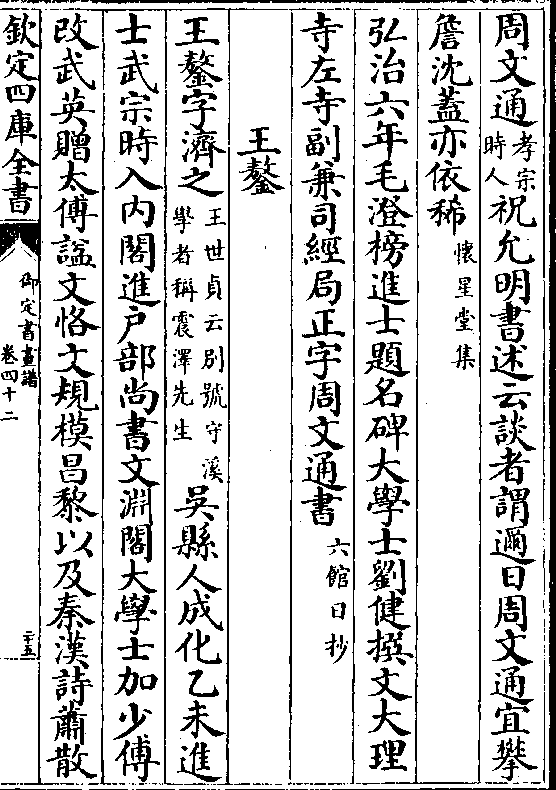 周文通孝宗時人祝允明書述云談者謂邇日周文通宜攀
詹沈蓋亦依稀懷星堂集
弘治六年毛澄榜進士題名碑大學士劉健撰文大理
寺左寺副兼司經局正字周文通書六館日抄
王鏊
王鏊字濟之王世貞云别號守溪學者稱震澤先生吳縣人成化乙未進
士武宗時入内閣進户部尚書文淵閣大學士加少傅
改武英贈太傅諡文恪文規模昌黎以及秦漢詩蕭散
欽定四庫全書
御定書畫譜
卷四十二
二十五